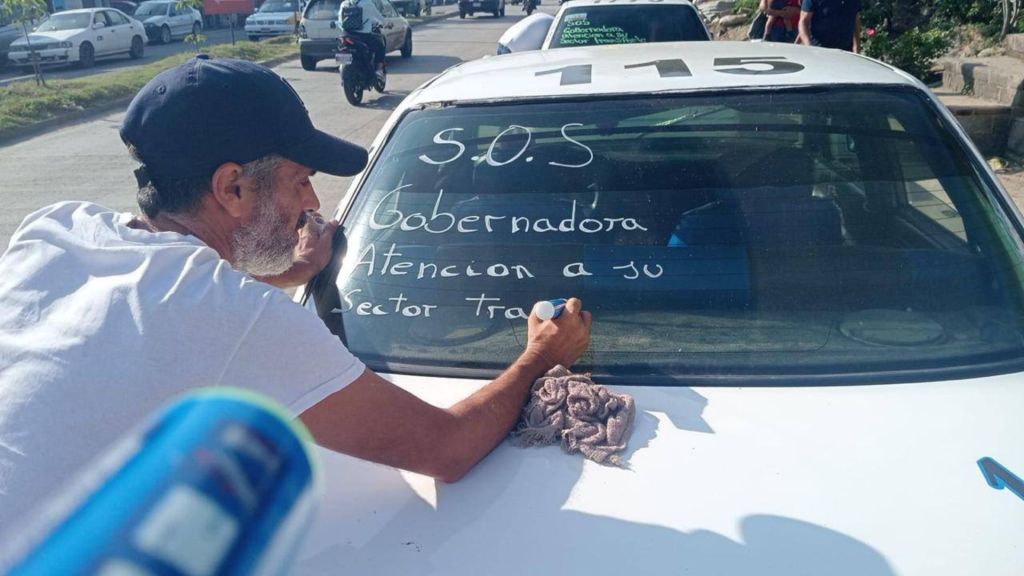 S.O.S
Gobernadora
Atencion a su
Sector tra
115
SOS
Gobernadora
Atencion a su
Sector